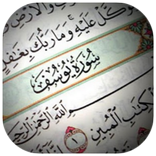 وَالْأَرْضِ
كَّلْ عَلَيْهِ وَمَا رَبُّكَ بِغَٰفِلٍ
سُورَةُ يُوسُفَ
مِ اللَّهِ الرَّحْمَٰنِ الرَّحِيمِ
الْكِتَٰبِ الْمُبِينِ ١